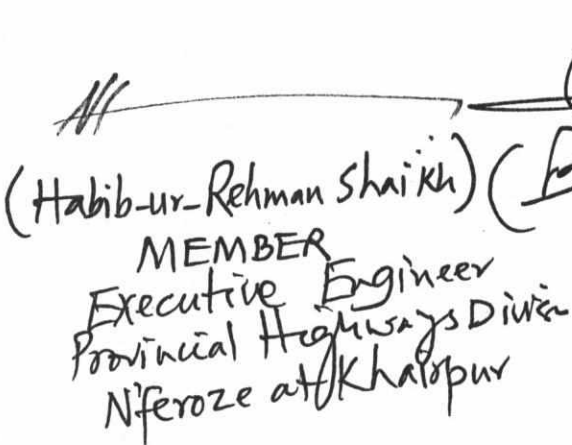 (Habib-ur-Rehman Shaikh) (
MEMBER
Executive Engineer
Provincial Highways Division
N'feroze at Khairpur